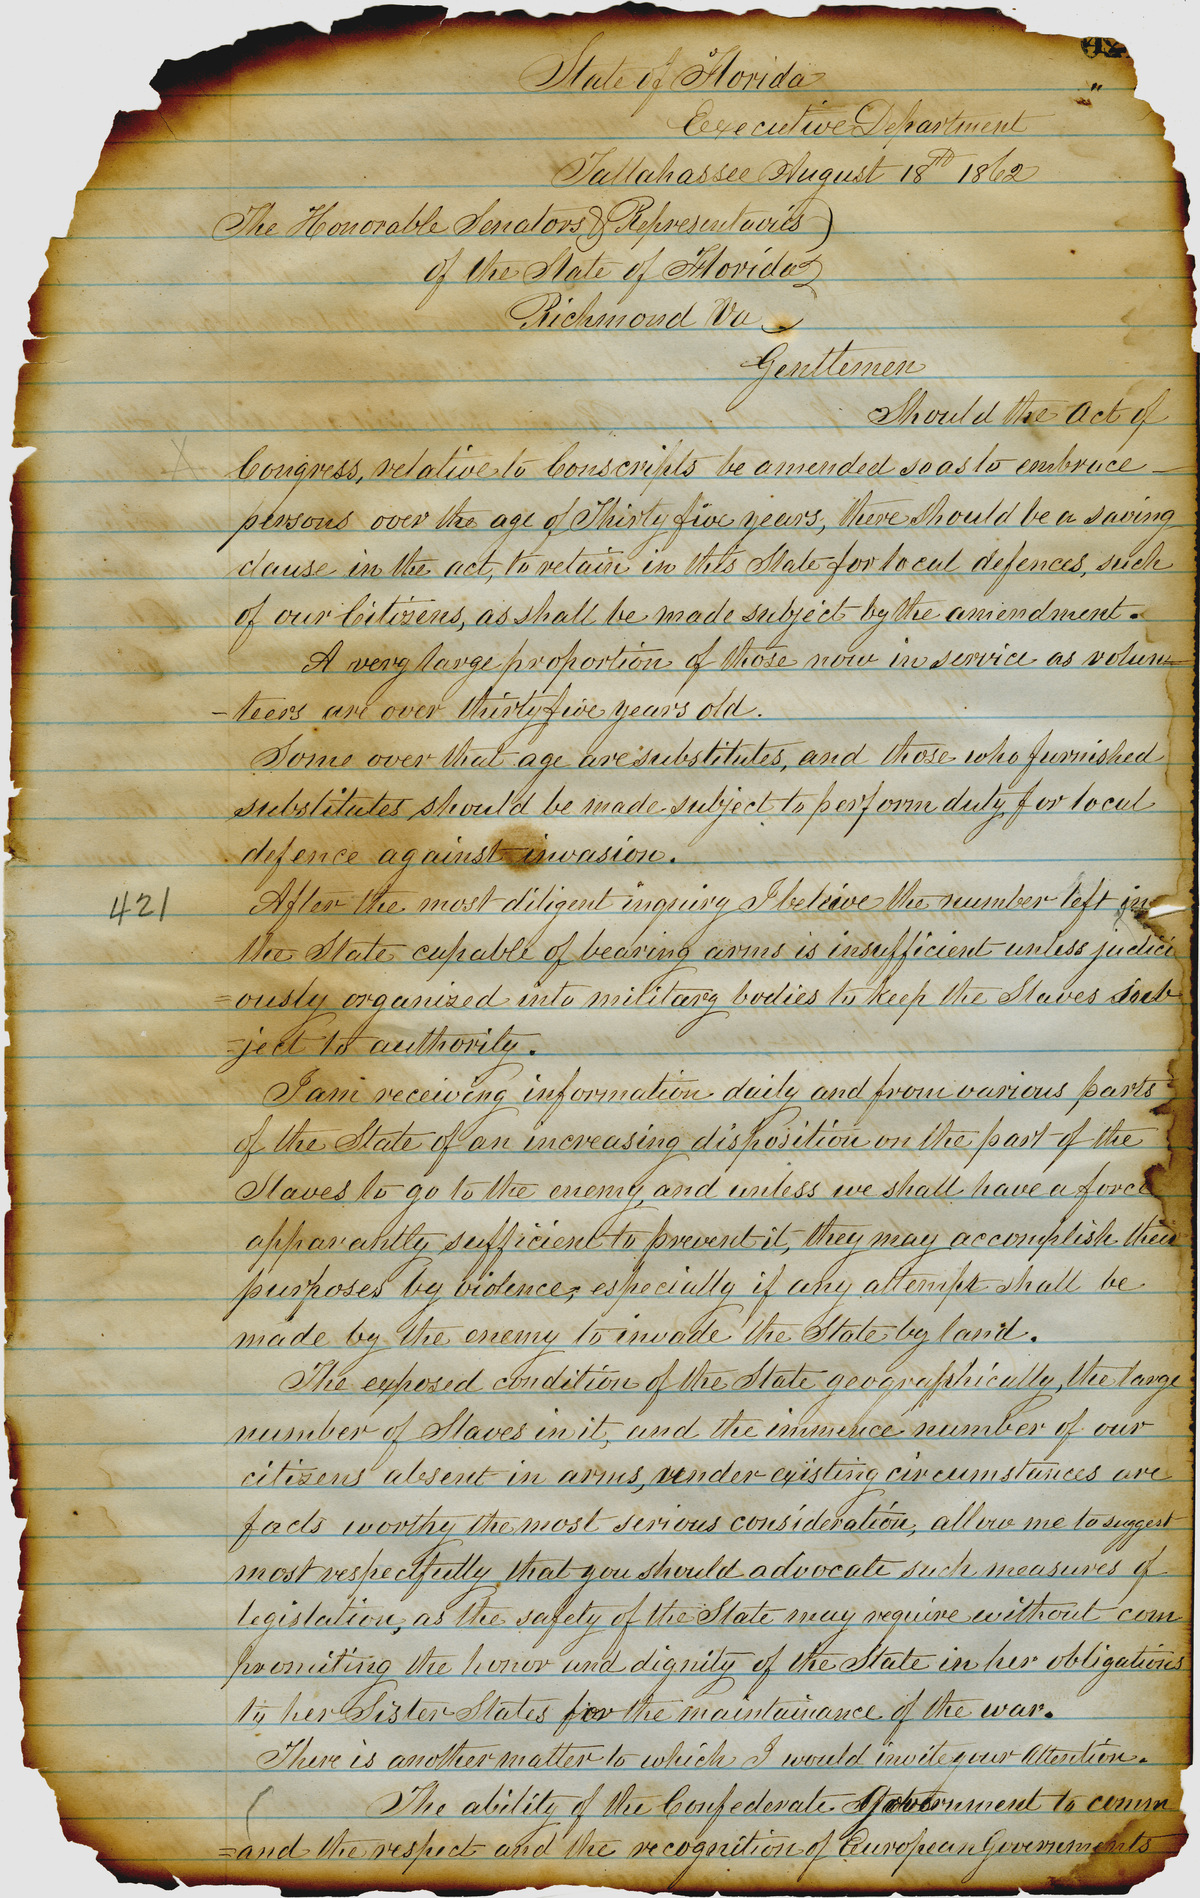 42
"
State of Florida
Executive Department
Tallahassee August 18th 1862
The Honorable Senators & Representavies )
of the State of Florida
Richmond Va
Gentlemen
Should the Act of
Congress, relative to Conscripts be amended so as to embrace
persons over the age of Thirty five years, there should be a saving
clause in the act, to retain in this State for local defences, such
of our Citizens, as shall be made subject by the amendment.
A very large proportion of those now in service as volun-
-teers are over thirty five years old.
Some over that age are substitutes, and those who furnished
substitutes should be made subject to perform duty for local
defence against invasion.
421 After the most diligent inquiry I beleive the number left in
the State capable of bearing arms is insufficient unless judici
=ously organized into military bodies to keep the Slaves sub
=ject to authority.
I am receiving information daily and from various parts
of the State of an increasing disposition on the part of the
Slaves to go to the enemy, and unless we shall have a force
apparantly sufficient to prevent it, they may accomplish their
purposes by violence, especially if any attempt shall be
made by the enemy to invade the State by land.
The exposed condition of the State geographically, the large
number of Slaves in it, and the immence number of our
citizens absent in arms, under existing circumstances are
facts worthy the most serious consideration, allow me to suggest
most respectfully that you should advocate such measures of
legislation, as the safety of the State may require without com
promiting the honor and dignity of the State in her obligations
to her Sister States for the maintainance of the war.
There is another matter to which I would invite your attention.
The ability of the Confederate Government to comm
=and the respect and the recognition of European Governments